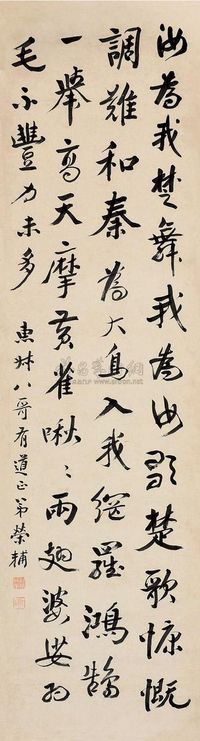 汝為我楚舞我為汝歌楚歌慷慨
調難和秦為大鳥入我網羅鴻鵠
一舉高天摩黃雀啾〻兩翅婆娑羽
毛不豐力未多 惠叔八哥有道正 弟榮輔